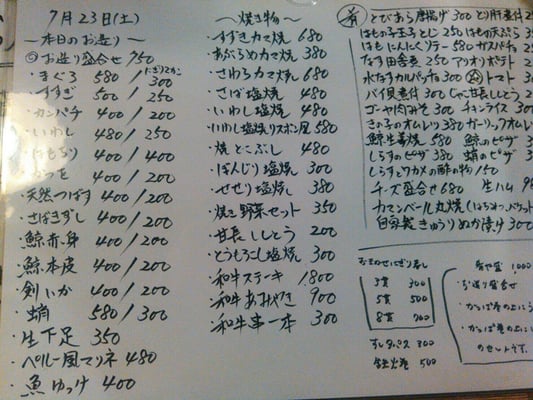 7月23日(土)
～本日のお造り～
◎お造り盛合せ 750
・まぐろ 580/にぎり2カン300
・すずき 500/250
・カンパチ 400/200
・いわし 480/250
400/400
400/200
・天然つばす 400/200
・さばきずし 400/200
・鯨赤身 400/200
・鯨本皮 400/200
・剣いか 400/200
・蛸 580/300
・生下足 350
・ペルー風マリネ 480
・魚ゆっけ 400
～焼き物～
・すずきカマ焼 680
・あぶらめカマ焼 380
・さわらカマ焼 680
・さば塩焼 480
・いわし塩焼 480
・いわし塩焼リスボン風 580
・焼とこぶし 480
・ぼんじり塩焼 300
・せせり塩焼 380
・焼き野菜セット 350
・甘長ししとう 200
・とうもろこし塩焼 300
・和牛ステーキ 1,800
・和牛あみやき 900
・和牛串一本 300
肴
とびあら唐揚げ 300 とり肝煮付 2
はもの子玉子とじ 250 はもの天ぷら 3
はもにんにくソテー 580 ガスパチョ 2
なす田舎煮 250 アリオリポテト 2
水なすカルパッチョ 300 トマト 3
バイ貝煮付 300 じゃこ甘長ししとう 2
ゴーヤ肉みそ 300 チキンライス 3
きの子のオムレツ 380 ガーリックオムレ
鯨生姜焼 580 鯨のピザ 3
しらすのピザ 380 蛸のピザ 3
しらすとワカメの酢の物 150
チーズ盛合せ 680 生ハム 9
カマンベール丸焼(はちみつ、バケット
自家製きゅうりぬか漬け 300
おまかせにぎり寿し
3貫 300
5貫 500
8貫 700
300
鉄火巻 500
1,000
・お造り盛合せ
のセットです。